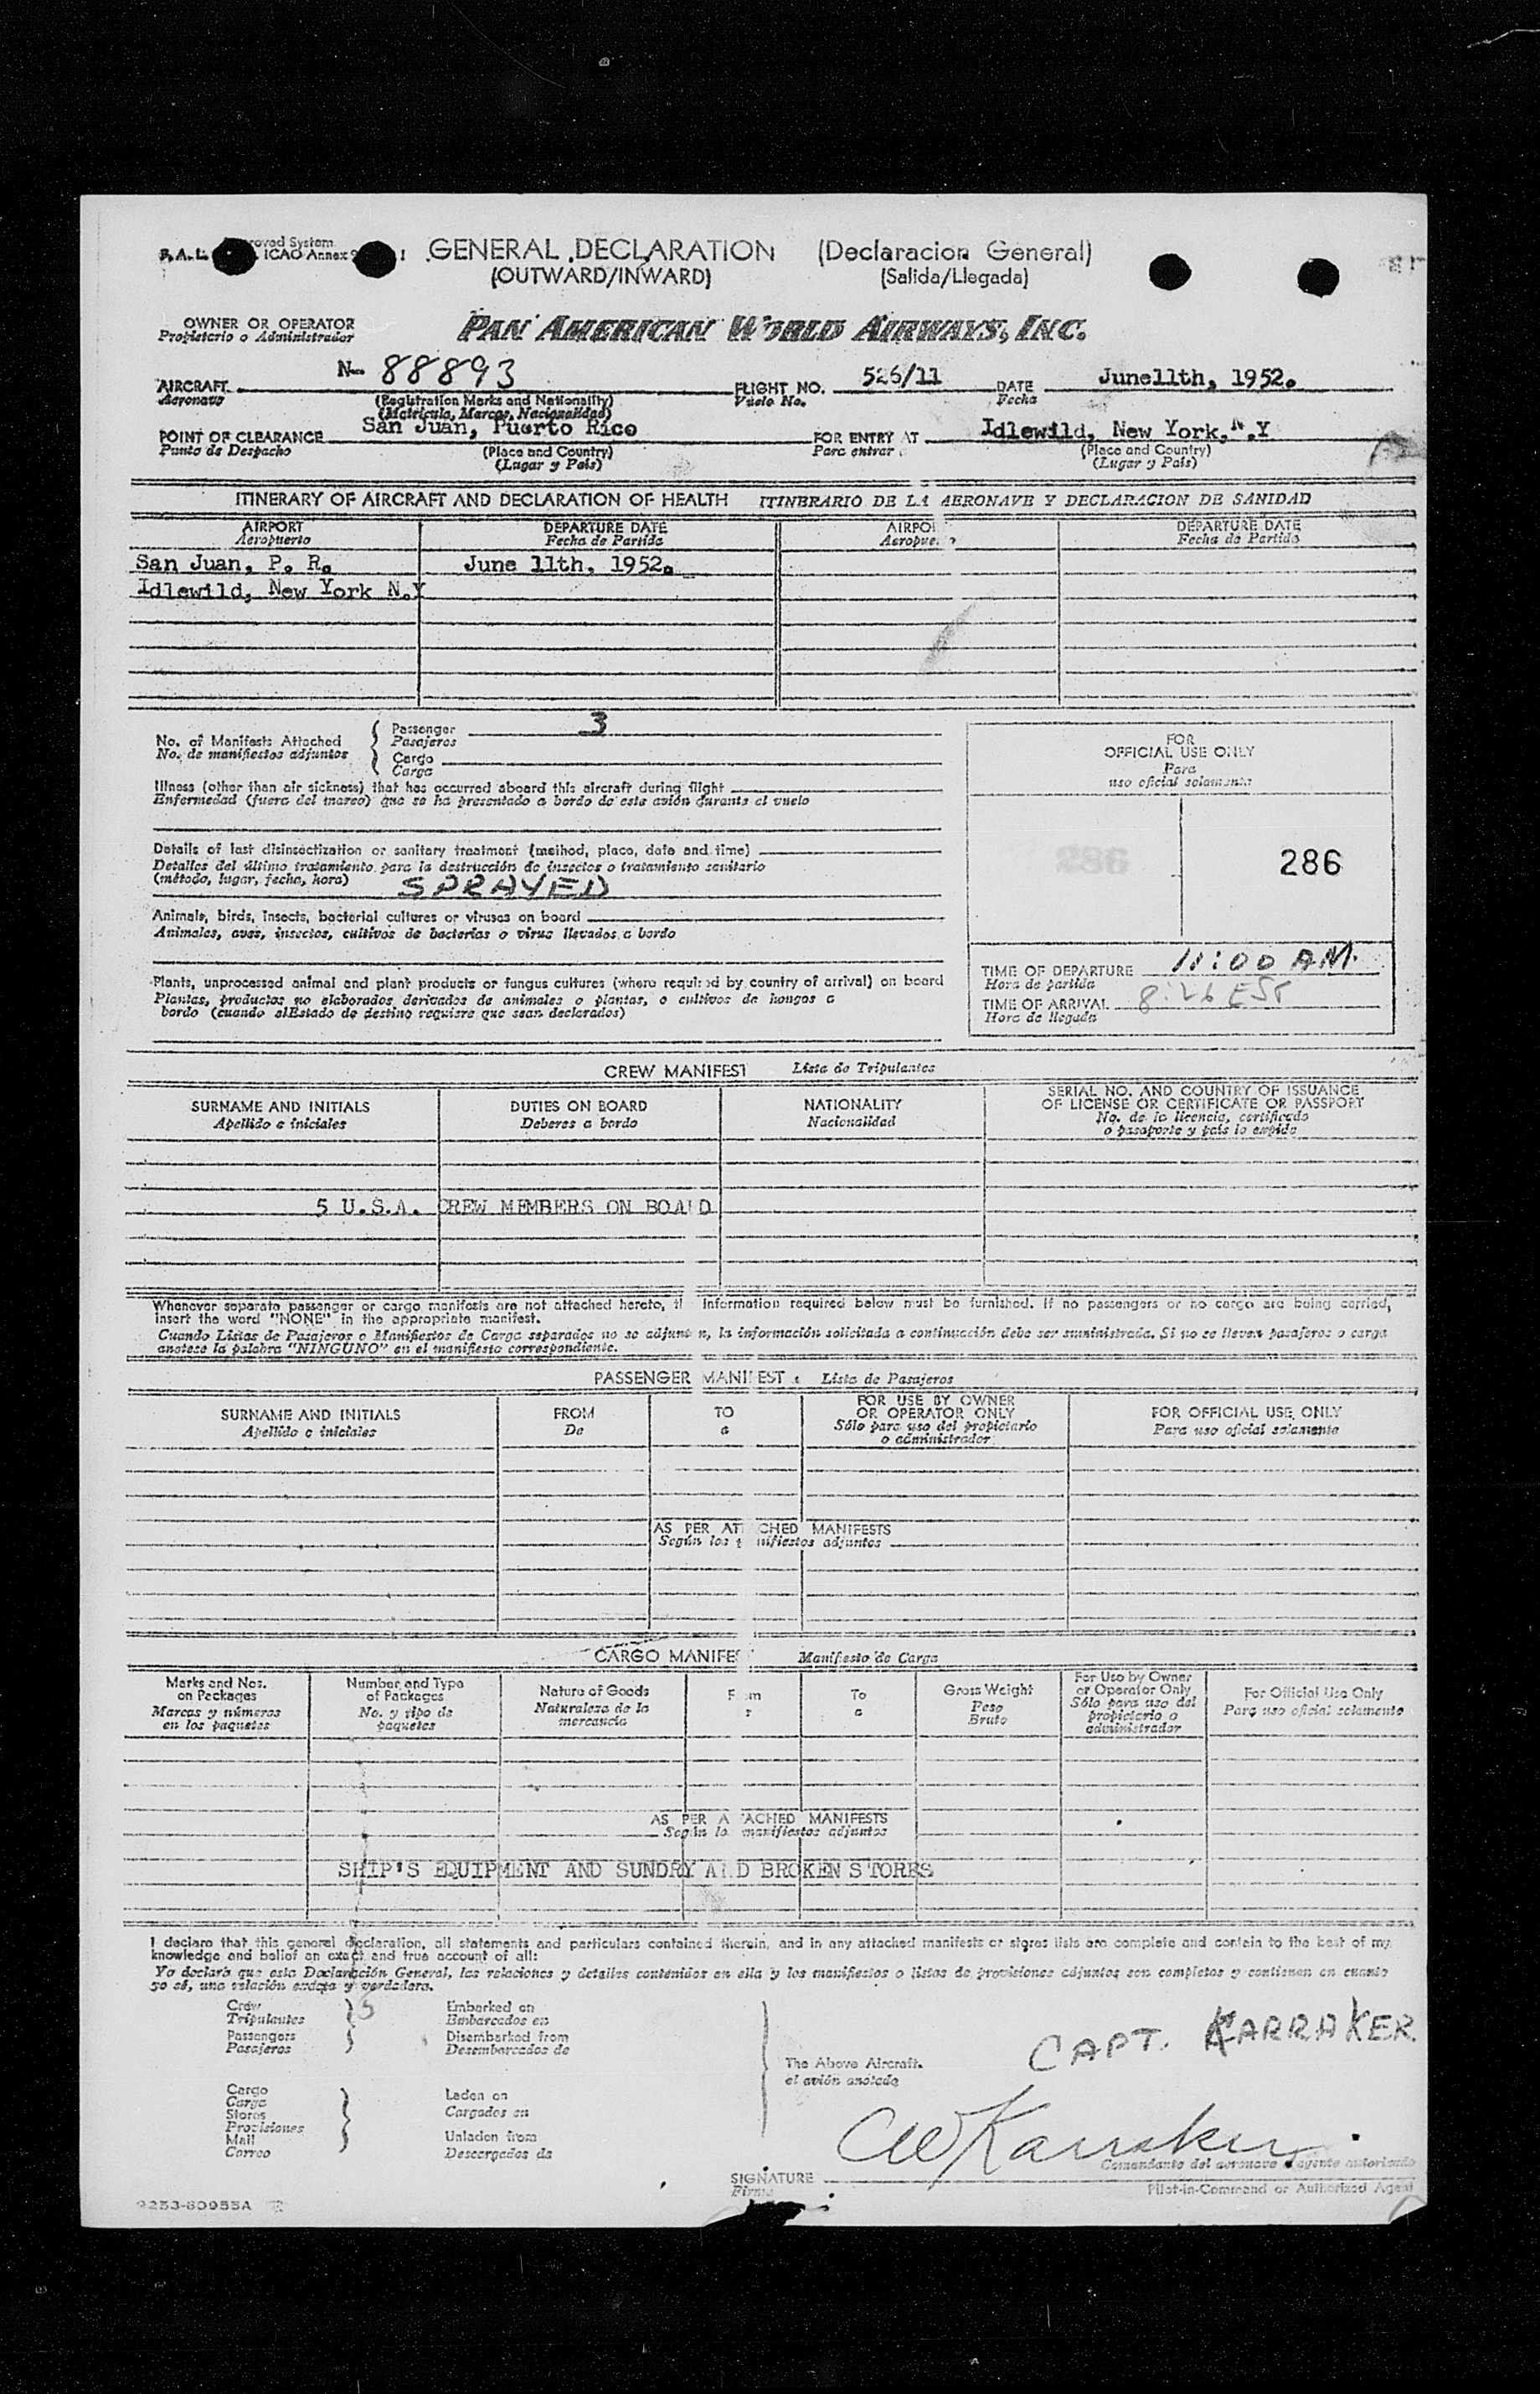 GENERAL DECLARATION (Declaracion General)
(OUTWARD/INWARD) (Salida/Llegada)
OWNER OR OPERATOR
Propietario o Administrador
PAN AMERICAN WORLD AIRWAYS, INC.
AIRCRAFT N- 88893 FLIGHT NO. 526/11 DATE June11th, 1952.
Aeronave (Registration Marks and Nationality) Vuelo No. Fecha
(Matricula, Marcas, Nacionalidad)
POINT OF CLEARANCE San Juan, Puerto Rico FOR ENTRY AT Idlewild, New York, N.Y
Punto de Despacho (Place and Country) Para entrar (Place and Country)
(Lugar y Pais) (Lugar y Pais)
ITINERARY OF AIRCRAFT AND DECLARATION OF HEALTH ITINERARIO DE LA AERONAVE Y DECLARACION DE SANIDAD
AIRPORT DEPARTURE DATE AIRPO DEPARTURE DATE
Aeropuerto Fecha de Partida Aeropue Fecha de Partida
San Juan, P. R. June 11th, 1952.
Idlewild, New York N.Y
No. of Manifests Attached Passenger 3
No. de manifiestos adjuntos Pasajeros
Cargo
Carga
Illness (other than air sickness) that has occurred aboard this aircraft during flight
Enfermedad (fuera del mareo) que se ha presentado a bordo de este avión durante el vuelo
Details of last disinsectization or sanitary treatment (method, place, date and time)
Detalles del último tratamiento para la destrucción de insectos o tratamiento sanitario
(método, lugar, fecha, hora) SPRAYED
Animals, birds, insects, bacterial cultures or viruses on board
Animales, aves, insectos, cultivos de bacterias o virus llevados a bordo
Plants, unprocessed animal and plant products or fungus cultures (where required by country of arrival) on board
Plantas, productos no elaborados derivados de animales o plantas, o cultivos de hongos a
bordo (cuando elEstado de destino requiere que sean declarados)
FOR
OFFICIAL USE ONLY
Para
uso oficial solamente
286 286
TIME OF DEPARTURE 11:00 AM.
Hora de partida
TIME OF ARRIVAL 8:26 EST
Hora de llegada
CREW MANIFEST Lista de Tripulantes
SURNAME AND INITIALS DUTIES ON BOARD NATIONALITY SERIAL NO. AND COUNTRY OF ISSUANCE
OF LICENSE OR CERTIFICATE OR PASSPORT
Apellido e iniciales Deberes a bordo Nacionalidad No. de la licencia, certificado
o pasaporte y país lo expide
5 U.S.A. CREW MEMBERS ON BOARD
Whenever separate passenger or cargo manifests are not attached hereto, information required below must be furnished. If no passengers or no cargo are being carried,
insert the word "NONE" in the appropriate manifest.
Cuando Listas de Pasajeros o Manifiestos de Carga separados no se adjunten, la información solicitada a continuación debe ser suministrada. Si no se llevan pasajeros o carga
anotese la palabra "NINGUNO" en el manifiesto correspondiente.
PASSENGER MANIFEST Lista de Pasajeros
SURNAME AND INITIALS FROM TO FOR USE BY OWNER
OR OPERATOR ONLY FOR OFFICIAL USE ONLY
Apellido e iniciales De a Sólo para uso del propietario
o administrador Para uso oficial solamente
AS PER ATTACHED MANIFESTS
Según los manifiestos adjuntos
CARGO MANIFES Manifiesto de Carga
Marks and Nos.
on Packages
Marcas y números
en los paquetes
Number and Type
of Packages
No. y tipo de
paquetes
Nature of Goods
Naturaleza de la
mercancía
From
To
a
Gross Weight
Peso
Bruto
For Use by Owner
or Operator Only
Sólo para uso del
propietario o
administrador
For Official Use Only
Para uso oficial solamente
AS PER ATTACHED MANIFESTS
Según los manifiestos adjuntos
SHIP'S EQUIPMENT AND SUNDRY AND BROKEN STORES
I declare that this general declaration, all statements and particulars contained therein, and in any attached manifests or stores lists are complete and contain to the best of my
knowledge and belief an exact and true account of all:
Yo declaro que esta Declaración General, las relaciones y detalles contenidos en ella y los manifiestos o listas de provisiones adjuntos son completos y contienen en cuanto
yo sé, una relación exacta y verdadera.
Crew 5 Embarked on
Tripulantes Embarcados en
Passengers Disembarked from
Pasajeros Desembarcados de
The Above Aircraft.
el avión anotado
CAPT. KARRAKER
Cargo
Carga
Stores
Provisiones
Mail
Correo
Laden on
Cargados en
Unladen from
Descargados de
CWKarraker
Comandante del aeronave o agente autorizado
SIGNATURE
Firma
Pilot-in-Command or Authorized Agent